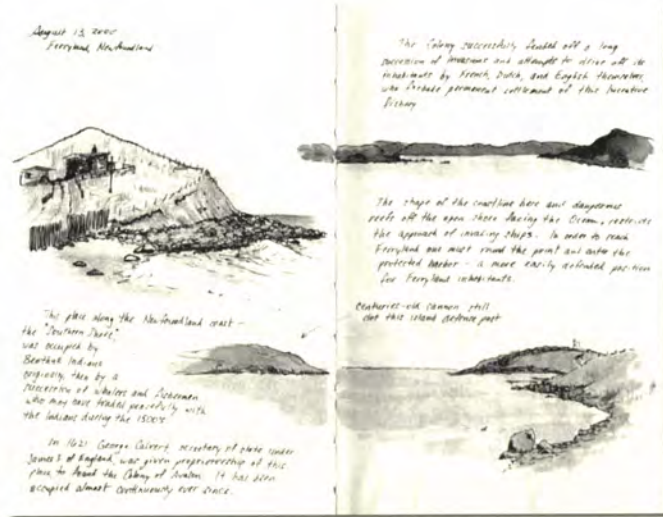 August 13, 2000
Ferryland, Newfoundland
This place along the Newfoundland coast –
the "Southern Shore",
was occupied by
Beothuk Indians
originally, then by a
succession of whalers and fishermen
who may have traded peacefully with
the Indians during the 1500's
In 1621 George Calvert, secretary of state under
James I of England, was given proprietorship of this
place to found the Colony of Avalon. It has been
occupied almost continuously ever since.
The Colony successfully fended off a long
succession of invasions and attempts to drive off its
inhabitants by French, Dutch, and English themselves,
who forbade permanent settlement of this lucrative
fishery
The shape of the coastline here and dangerous
reefs off the open shore facing the Ocean, restricts
the approach of invading ships. In order to reach
Ferryland one must round the point and enter the
protected harbor – a more easily defended position
for Ferryland inhabitants.
Centuries-old cannon still
dot this island defense post